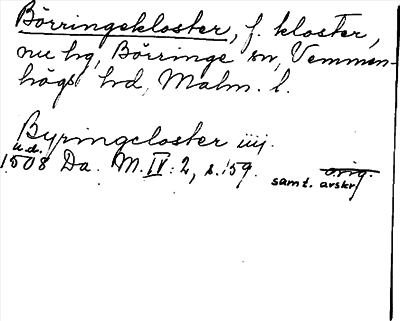 Börringekloster, f. kloster,
nu hg, Börringe sn, Vemmen-
högs hd, Malm. l.
Byringcloster iiij.
u.d.
1508 Da. M. IV: 2, s. 159. orig.
samt. avskr.